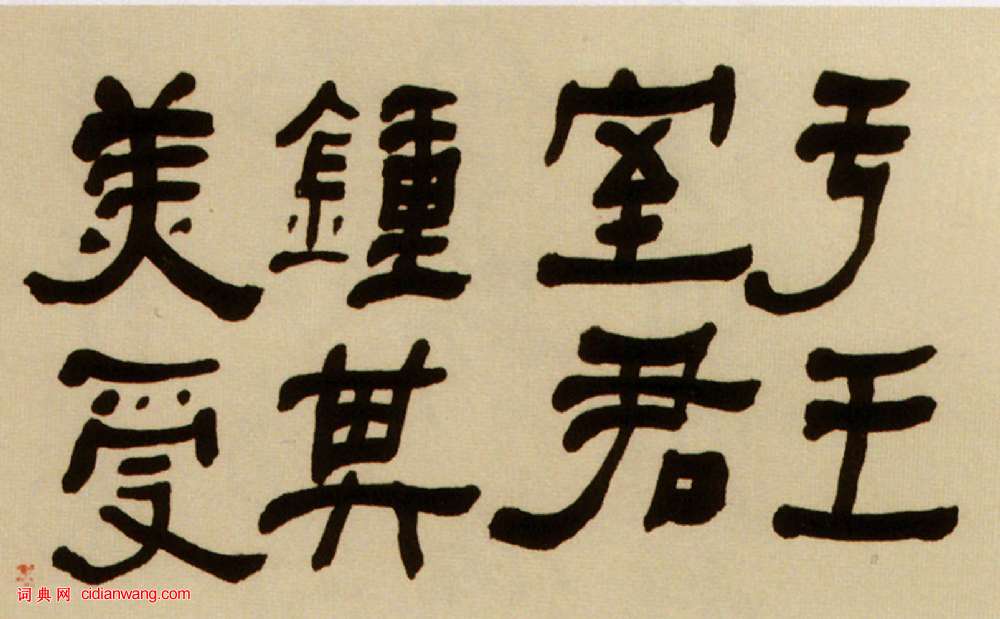 于王
室君
鍾其
美受
词典网 cidianwang.com